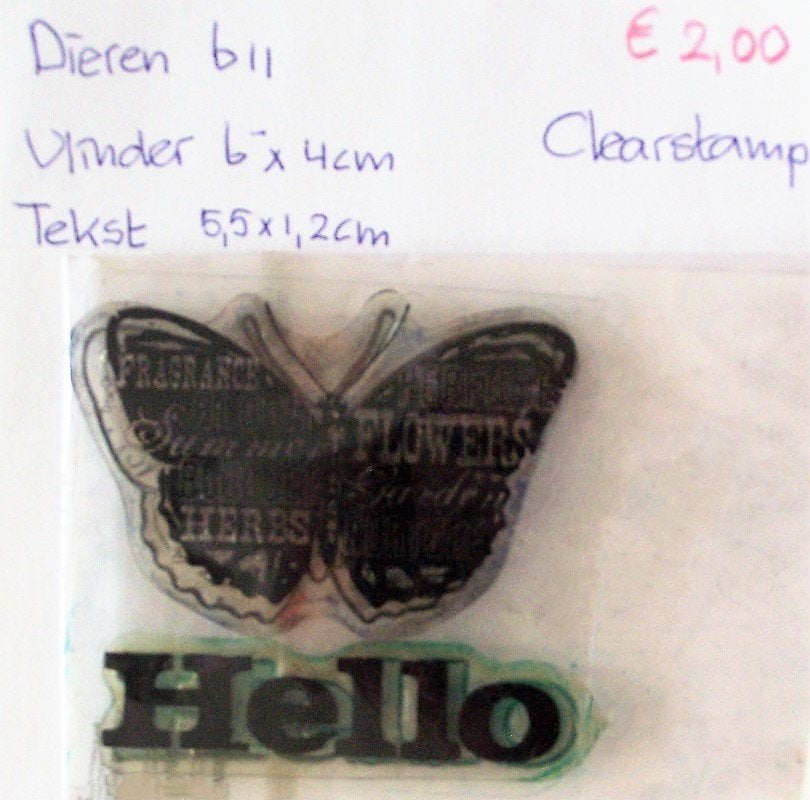 Dieren b11
€ 2,00
Vlinder 6 x 4cm
Clearstamp
Tekst 5,5x1,2cm
FRAGRANCE
Summer
FLOWERS
Garden
HERBS
Hello